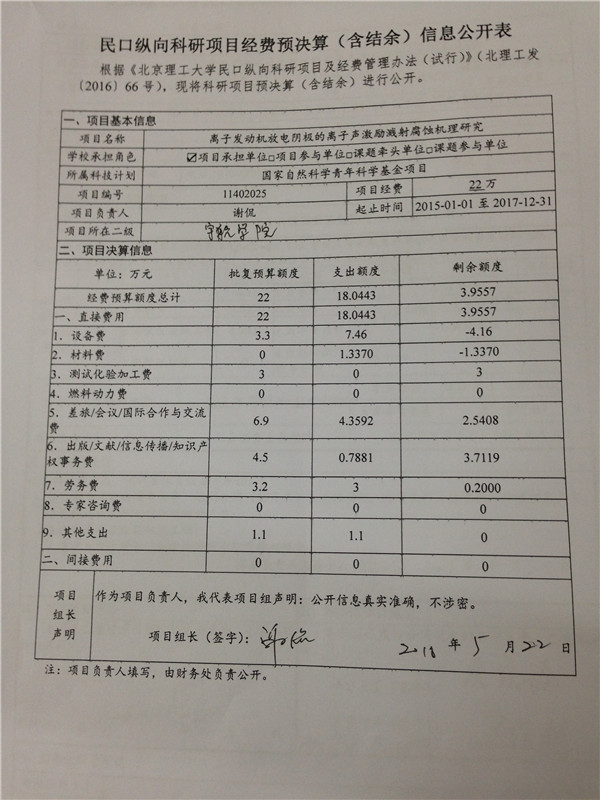 民口纵向科研项目经费预决算（含结余）信息公开表
根据《北京理工大学民口纵向科研项目及经费管理办法（试行）》（北理工发
〔2016〕66号），现将科研项目预决算（含结余）进行公开。
一、项目基本信息
项目名称 离子发动机放电阴极的离子声激励溅射腐蚀机理研究
学校承担角色 ☑项目承担单位□项目参与单位□课题牵头单位□课题参与单位
所属科技计划 国家自然科学青年科学基金项目
项目编号 11402025 项目经费 22万
项目负责人 谢侃 起止时间 2015-01-01 至 2017-12-31
项目所在二级 宇航学院
二、项目决算信息
单位：万元 批复预算额度 支出额度 剩余额度
经费预算额度总计 22 18.0443 3.9557
一、直接费用 22 18.0443 3.9557
1. 设备费 3.3 7.46 -4.16
2. 材料费 0 1.3370 -1.3370
3. 测试化验加工费 3 0 3
4. 燃料动力费 0 0 0
5. 差旅/会议/国际合作与交流
费 6.9 4.3592 2.5408
6. 出版/文献/信息传播/知识产
权事务费 4.5 0.7881 3.7119
7. 劳务费 3.2 3 0.2000
8. 专家咨询费 0 0 0
9. 其他支出 1.1 1.1 0
二、间接费用 0 0 0
项目
组长
声明
作为项目负责人，我代表项目组声明：公开信息真实准确，不涉密。
项目组长（签字）：谢侃 2018 年 5 月 22 日
注：项目负责人填写，由财务处负责公开。